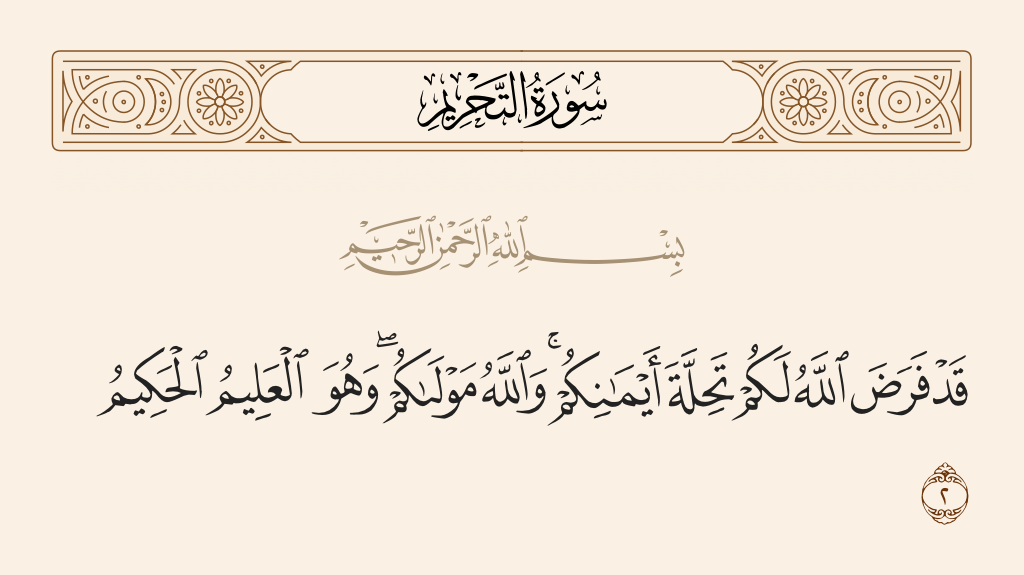 سُورَةُ التَّحْرِيمِ
بِسْمِ ٱللَّهِ ٱلرَّحْمَٰنِ ٱلرَّحِيمِ
قَدْ فَرَضَ ٱللَّهُ لَكُمْ تَحِلَّةَ أَيْمَٰنِكُمْ ۚ وَٱللَّهُ مَوْلَىٰكُمْ ۖ وَهُوَ ٱلْعَلِيمُ ٱلْحَكِيمُ
٢